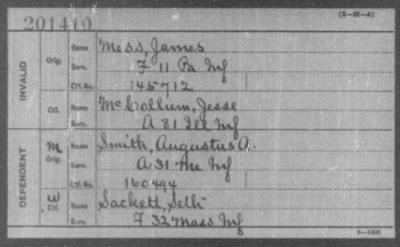 201410
(3-M-4)
INVALID
Orig.
Name Mess, James
Serv. F 11 Pa Inf
Crt. No. 145712
Ctf.
Name McCollum, Jesse
Serv. A 81 Ill Inf
DEPENDENT
M
Orig.
Name Smith, Augustus A.
Serv. A 31 Me Inf
Ctf. No. 160494
W
Ctf.
Name Sackett, Seth
Serv. F 32 Mass Inf